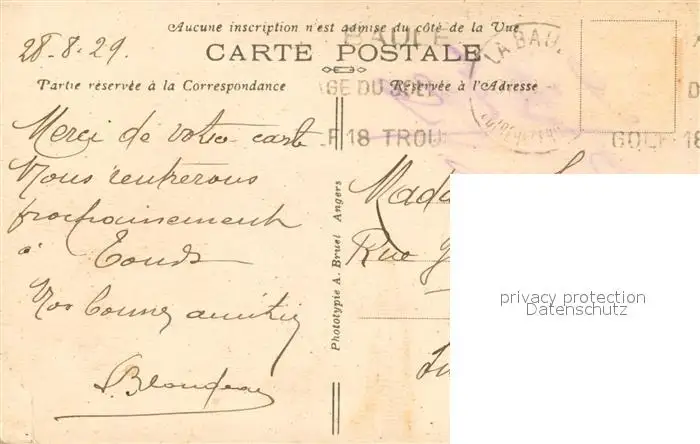 Aucune inscription n'est admise du côté de la Vue
28-8-29.
CARTE POSTALE
Partie réservée à la Correspondance
Réservée à l'Adresse
BAULE
LA BAULE
GE DU SOL
F 18 TROU
GOLF 18
Merci de votre carte
Nous rentrerons
prochainement
à
Nos bonnes amitiés
Blondeau
Phototypie A. Bruel Angers
Mada
Rue
privacy protection
Datenschutz